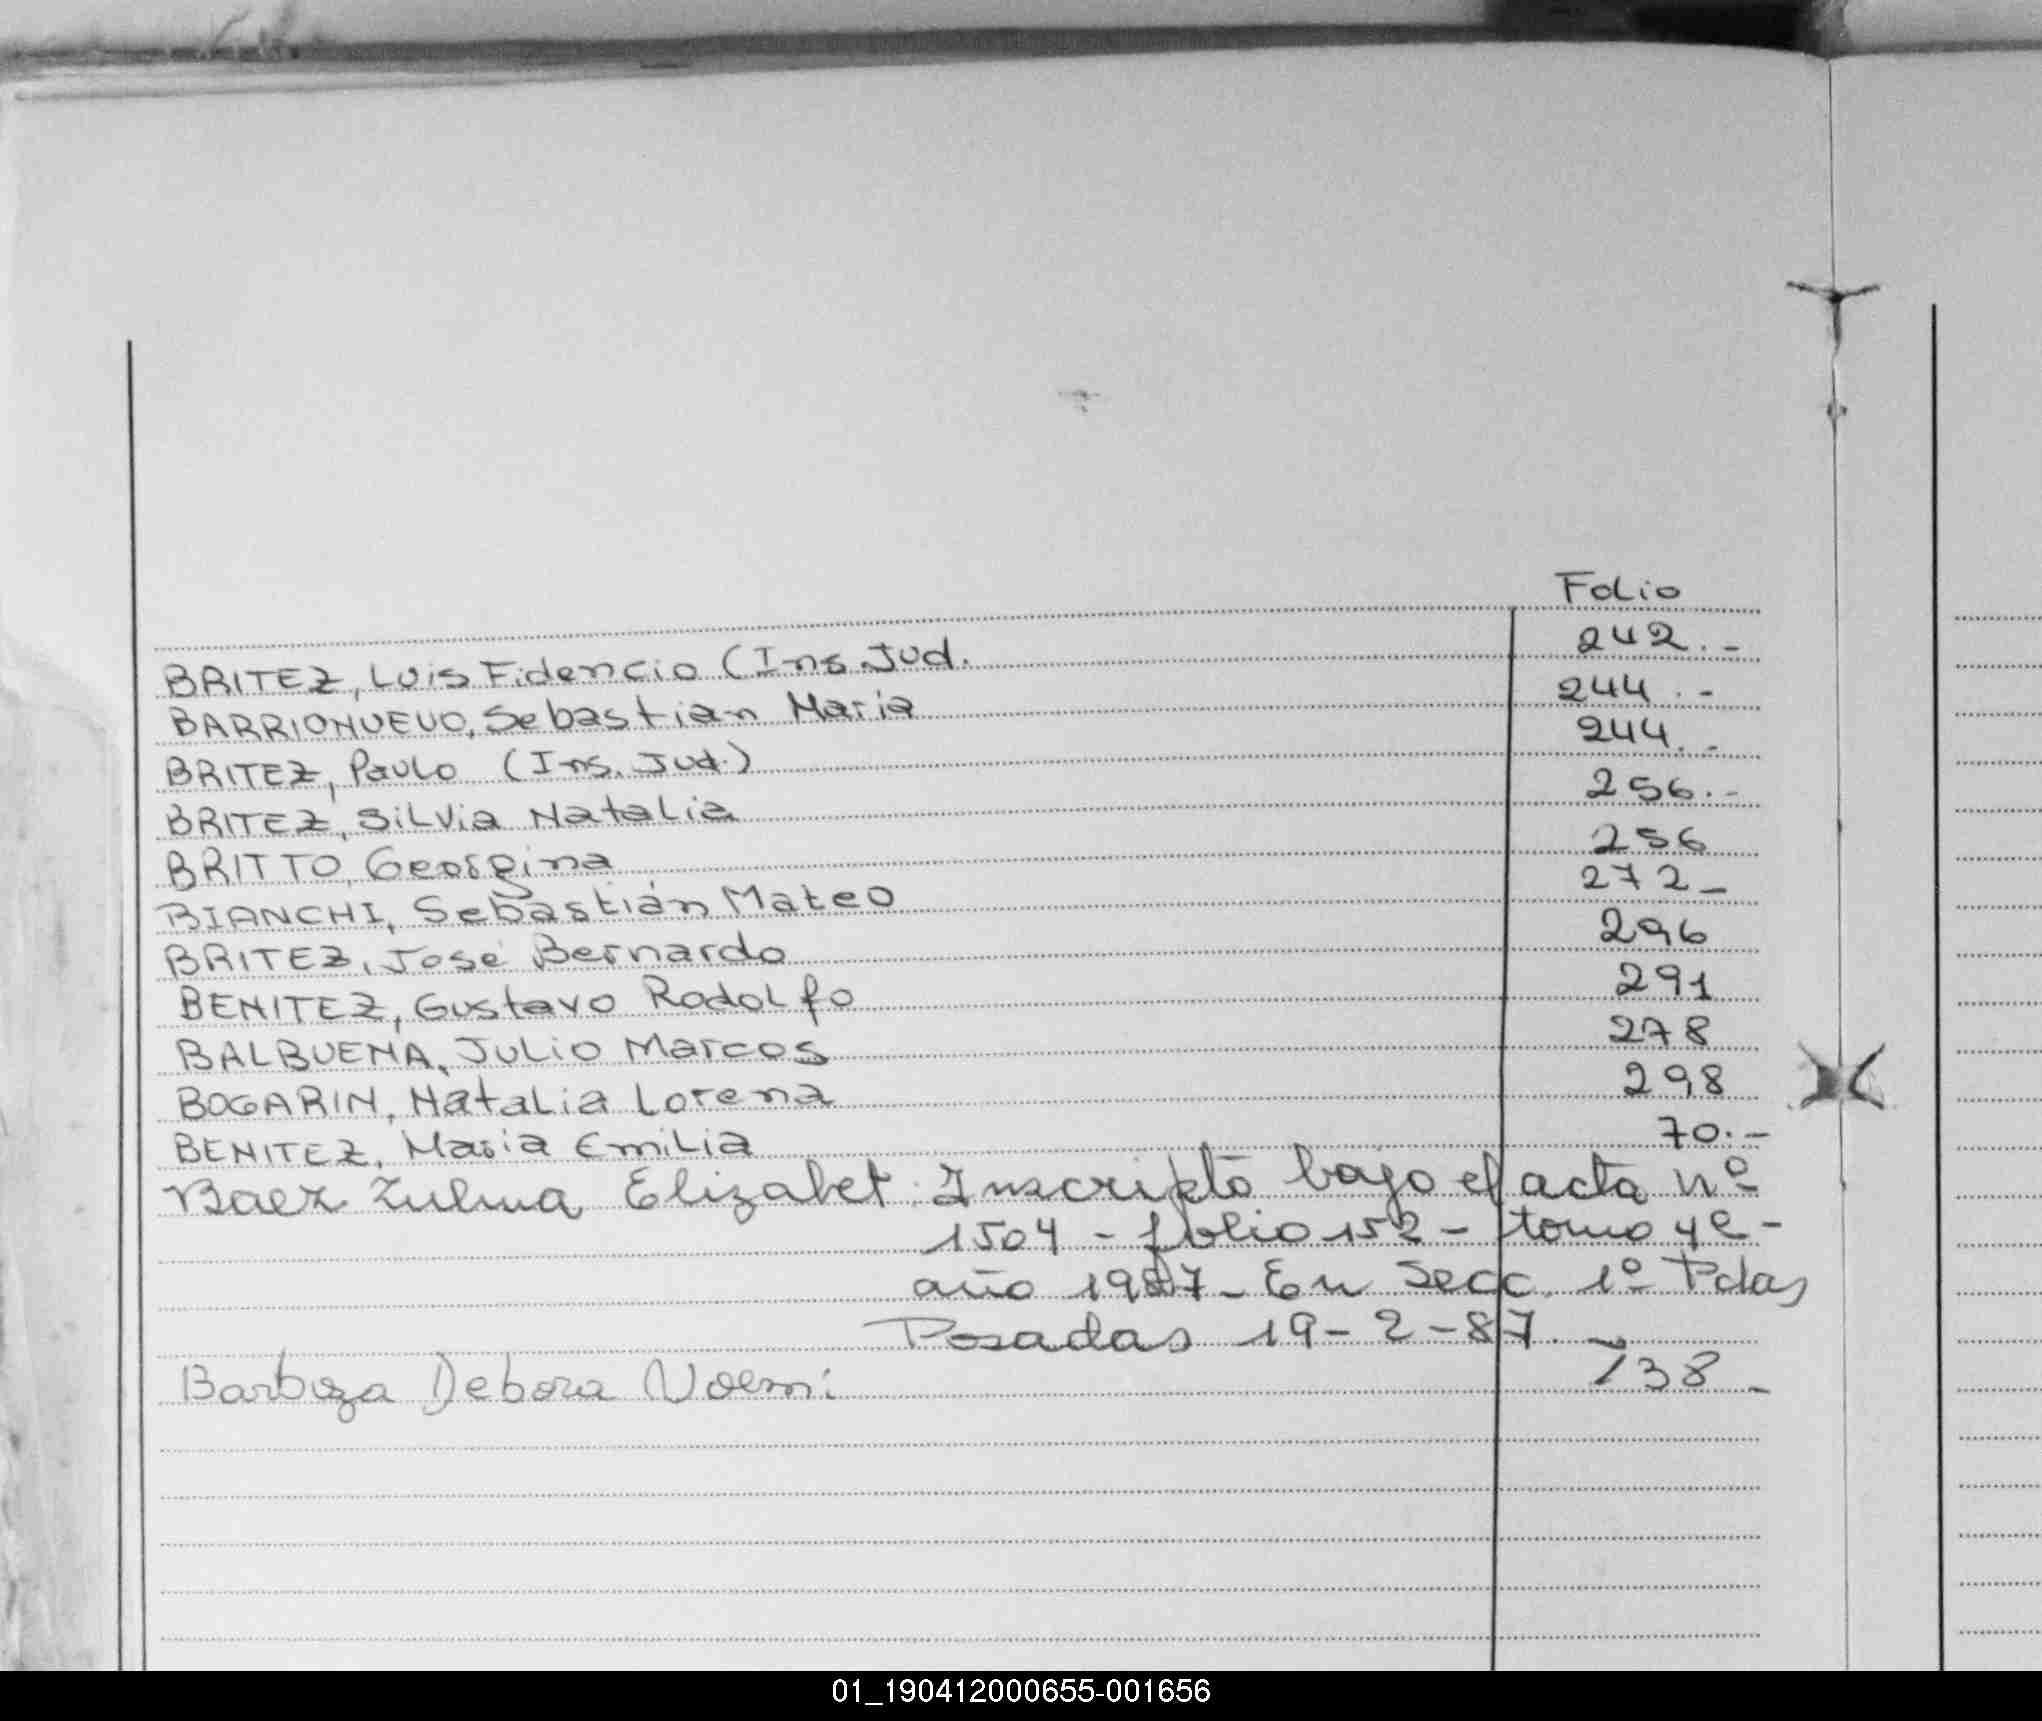 Folio
BRITEZ, Luis Fidencio (Ins. Jud. 242.-
BARRIONUEVO, Sebastian Maria 244.-
BRITEZ, Paulo (Ins. Jud.) 244.-
BRITEZ, Silvia Natalia 256.-
BRITTO, Georgina 256
BIANCHI, Sebastián Mateo 272-
BRITEZ, José Bernardo 296
BENITEZ, Gustavo Rodolfo 291
BALBUENA, Julio Marcos 278
BOGARIN, Natalia Lorena 298
BENITEZ, Maria Emilia 70.-
Baez Zulma Elizabet. Inscripto bajo el acta nº
1504 - folio 152 - tomo 4º -
año 1987 - En Secc. 1º Pdas
Posadas 19-2-87.
Barboza Debora Noemi 138-
01_190412000655-001656